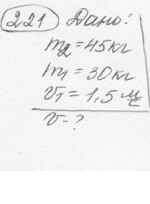 221 Дано:
m₂ = 45 кг
m₁ = 30 кг
v₁ = 1,5 м/с
v - ?